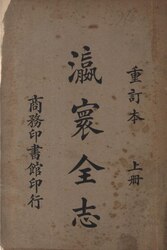 重訂本 上册
瀛寰全志
商務印書館印行